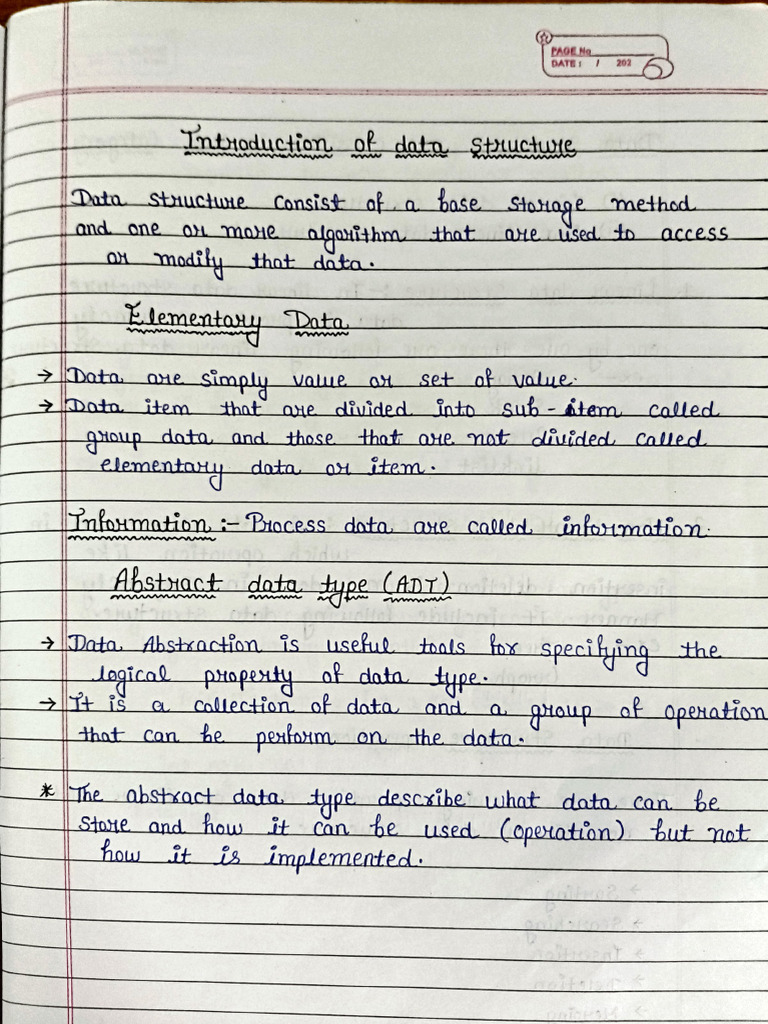 PAGE No
DATE : / 202
Introduction of data structure
Data structure consist of a base storage method
and one or more algorithm that are used to access
or modify that data.
Elementary Data
→ Data are simply value or set of value.
→ Data item that are divided into sub-item called
group data and those that are not divided called
elementary data or item.
Information :- Process data are called information.
Abstract data type (ADT)
→ Data Abstraction is useful tools for specifying the
logical property of data type.
→ It is a collection of data and a group of operation
that can be perform on the data.
* The abstract data type describe what data can be
store and how it can be used (operation) but not
how it is implemented.